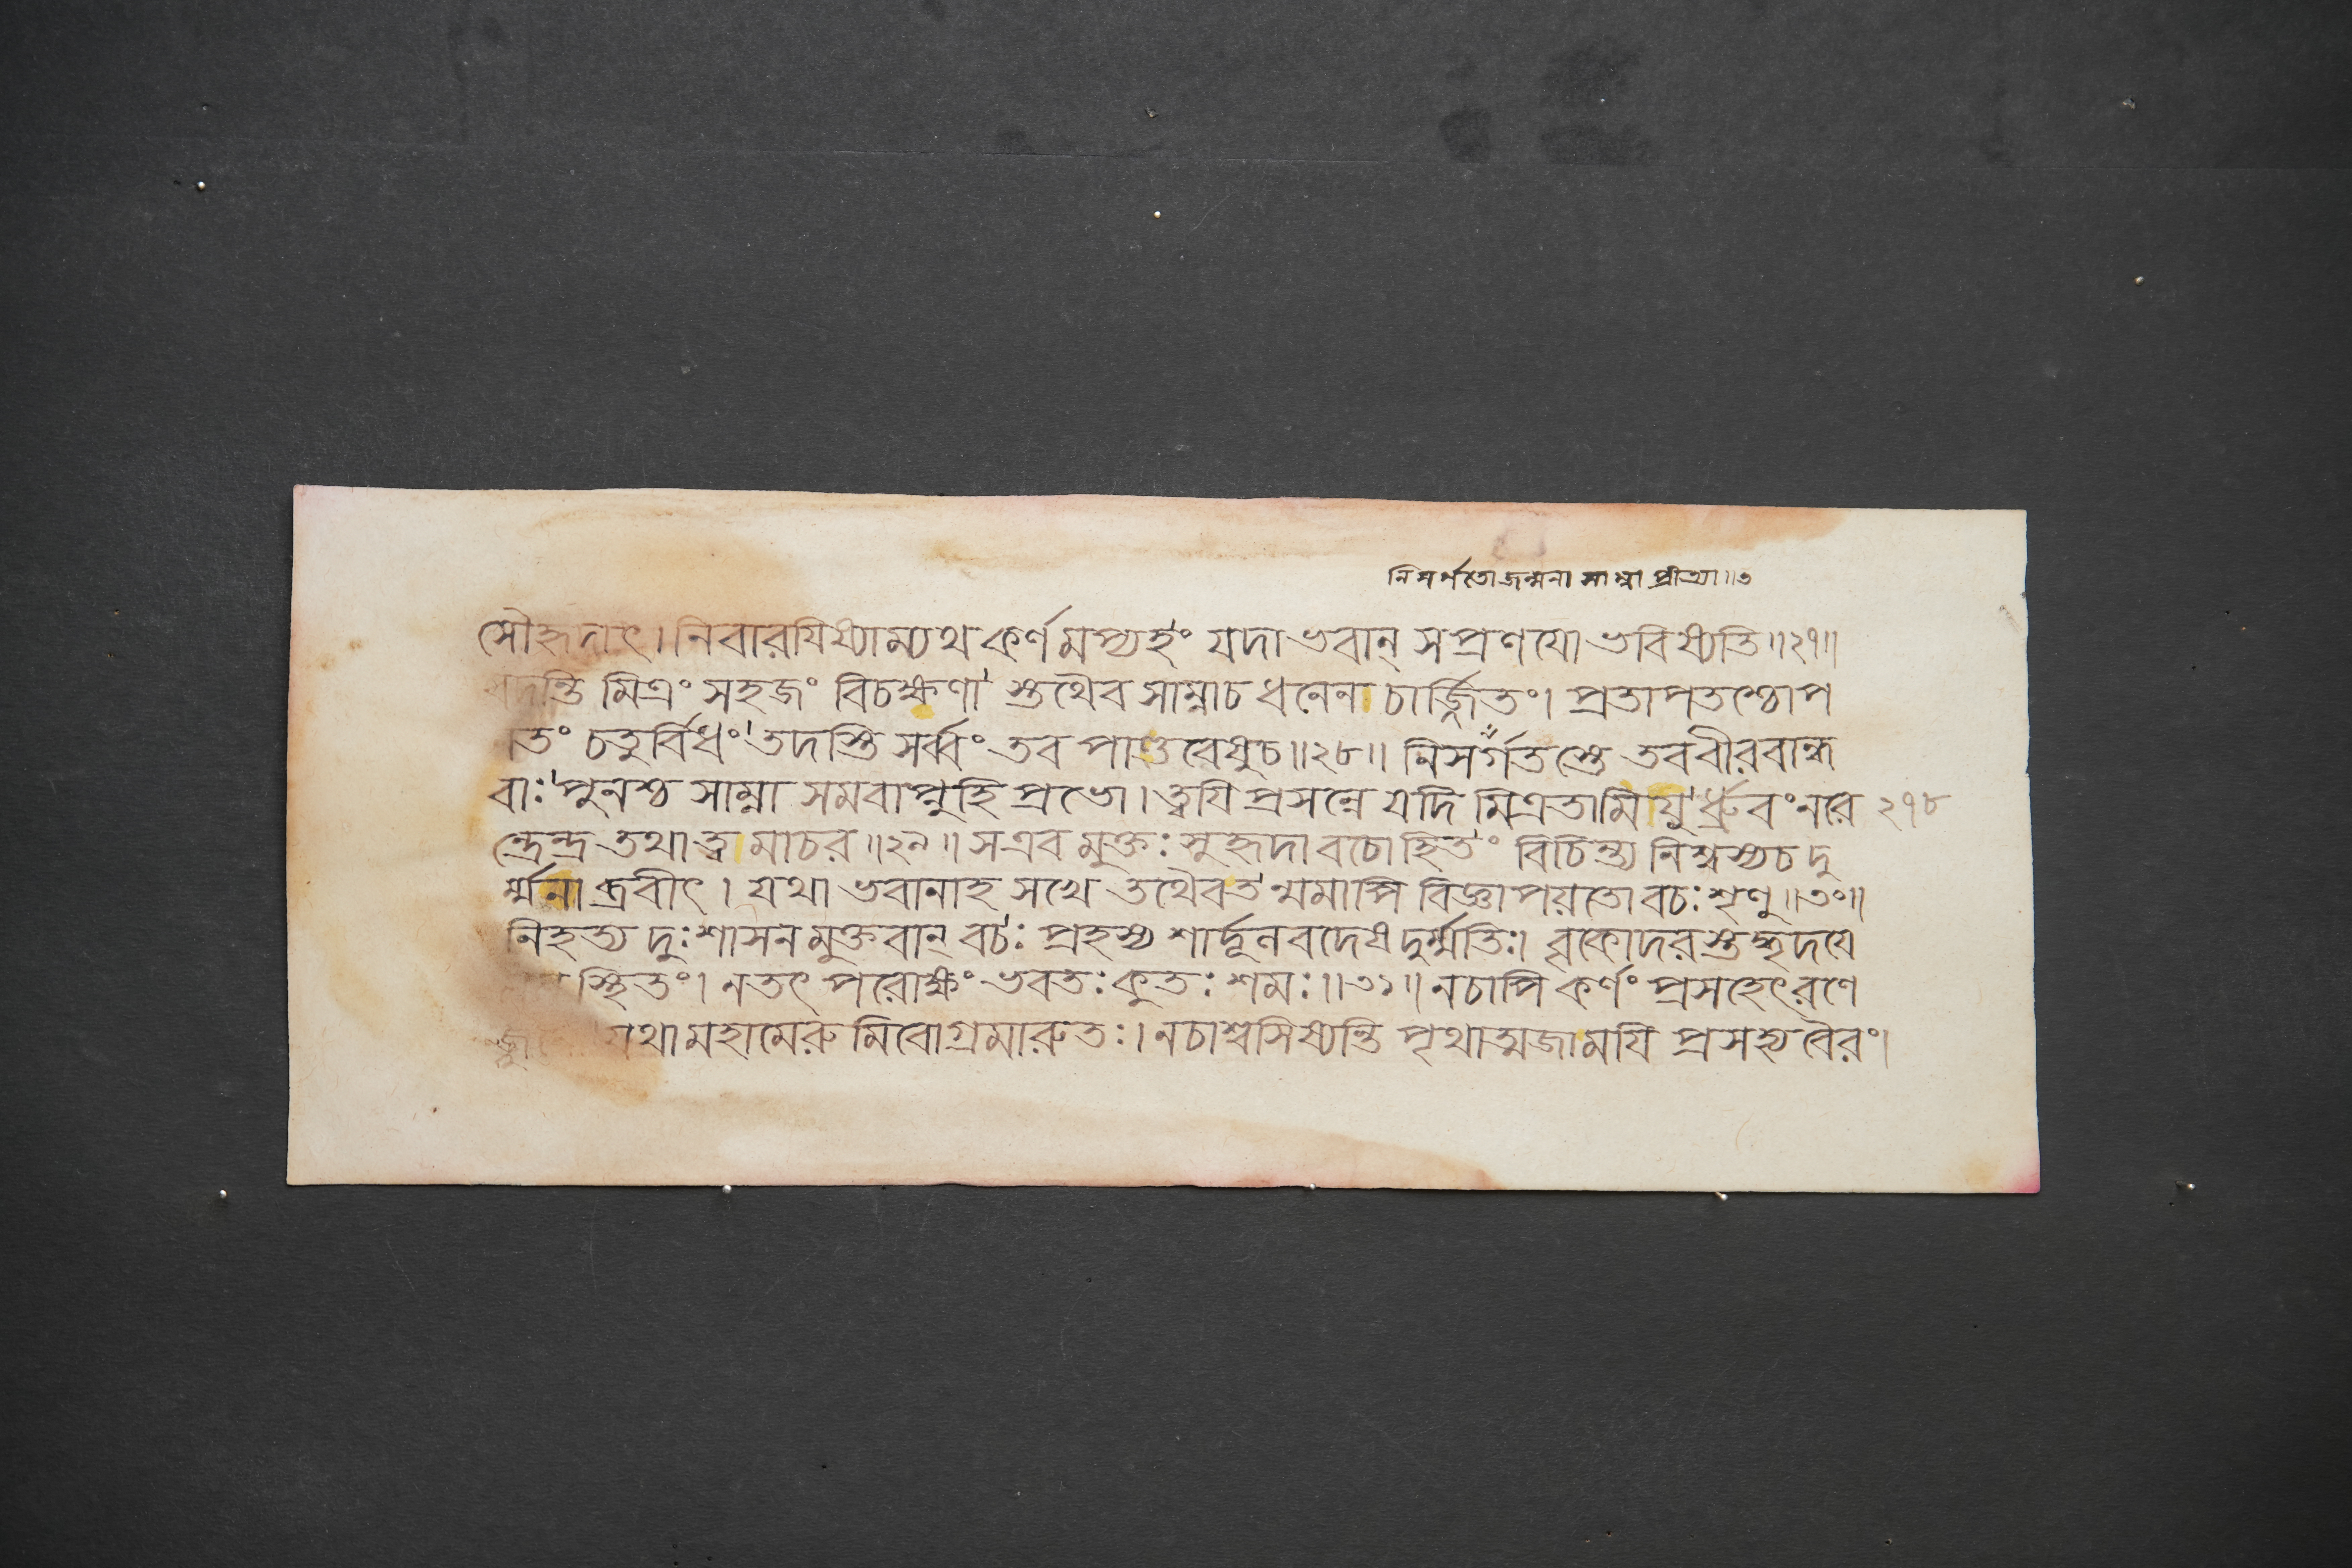 নিসর্গতো জন্মনা সাম্না প্রীত্যা॥৩
সৌহৃদাৎ। নিবারযিষ্যাম্যথ কর্ণমপ্যহং যদা ভবান্ সপ্রণযো ভবিষ্যতি॥২৭॥
বদন্তি মিত্রং সহজং বিচক্ষণা স্তথৈব সাম্নাচ ধনেন চার্জ্জিতং। প্রতাপতশ্চোপ
তং চতুর্বিধং তদস্তি সর্ব্বং তব পাণ্ডবেষুচ॥২৮॥ নিসর্গতস্তে তববীরবান্ধ
বাঃ পুনশ্চ সাম্না সমবাপ্নুহি প্রভো। ত্বযি প্রসন্নে যদি মিত্রতামিযু র্ধ্রুবংনরে ২৭৮
ন্দ্রেন্দ্র তথা ত্ব মাচর॥২৯॥ সএব মুক্তঃ সুহৃদা বচোহিতং বিচিন্ত্য নিশ্বস্যচ দু
র্ম্মনা ব্রবীৎ। যথা ভবানাহ সখে তথৈবত ন্মমাপি বিজ্ঞাপয়তো বচঃ শৃণু॥৩০॥
নিহত্য দুঃশাসন মুক্তবান্ বচঃ প্রহস্য শার্দূলবদেষ দুর্ম্মতিঃ। বৃকোদরস্তদ্ধৃদযে
স্থিতং। নতৎ পরোক্ষং ভবতঃ কুতঃ শমঃ॥৩১॥ নচাপি কর্ণং প্রসহেৎরণে
যথা মহামেরু মিবোগ্রমারুতঃ। নচাশ্বসিষ্যন্তি পৃথাত্মজামযি প্রসহ্য বৈরং।